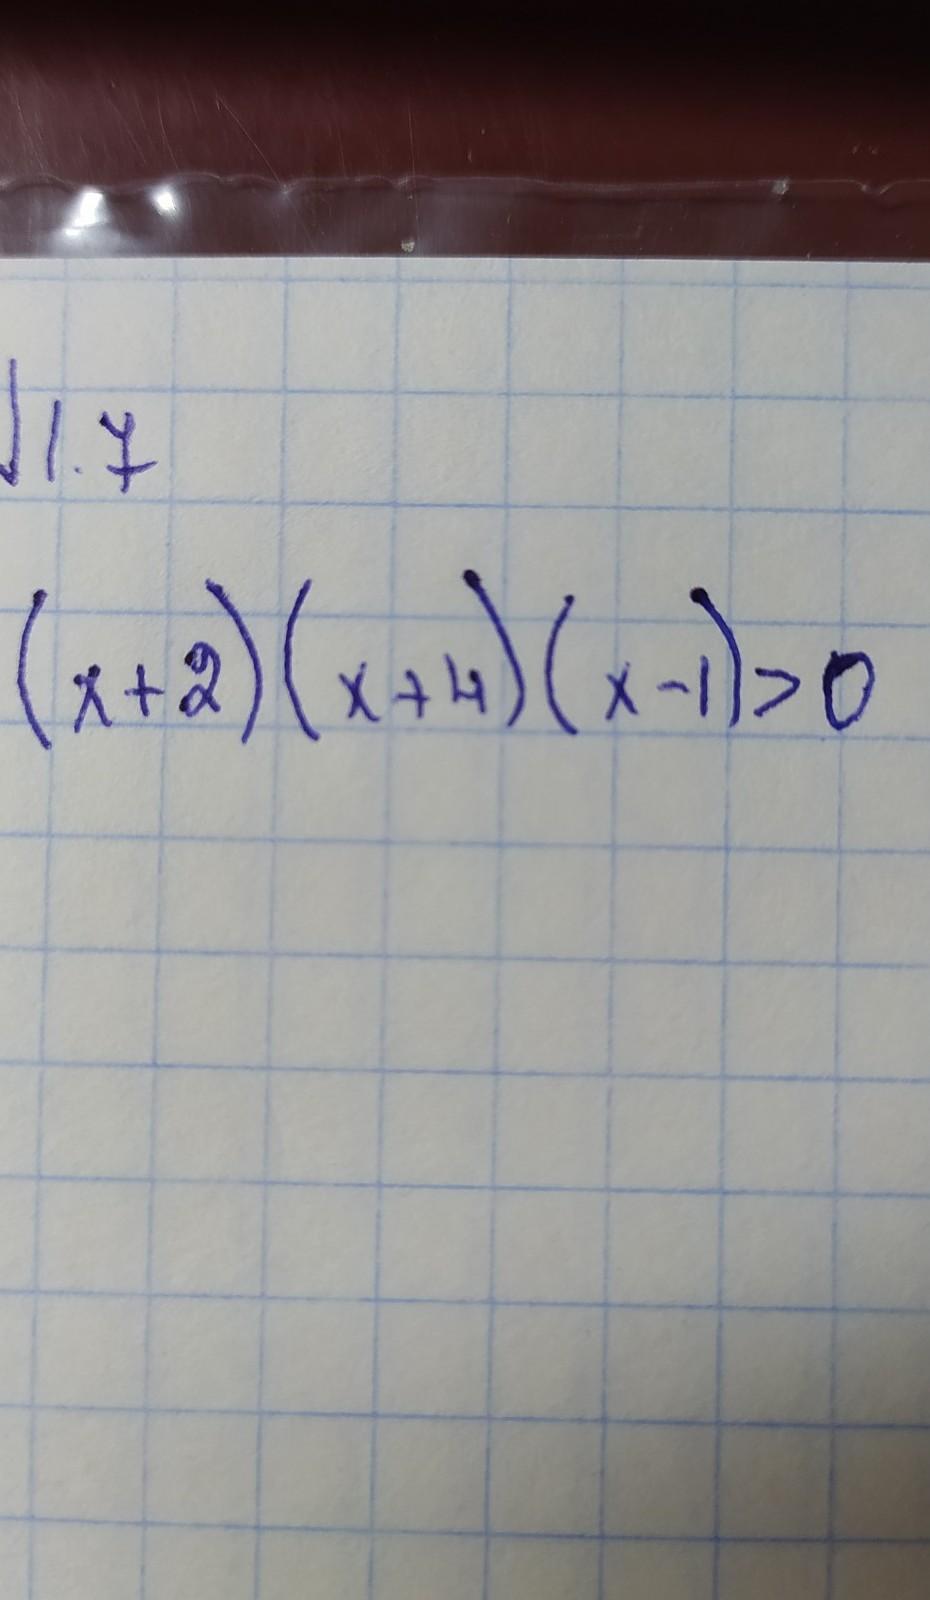 √1.7
(x+2)(x+4)(x-1)>0